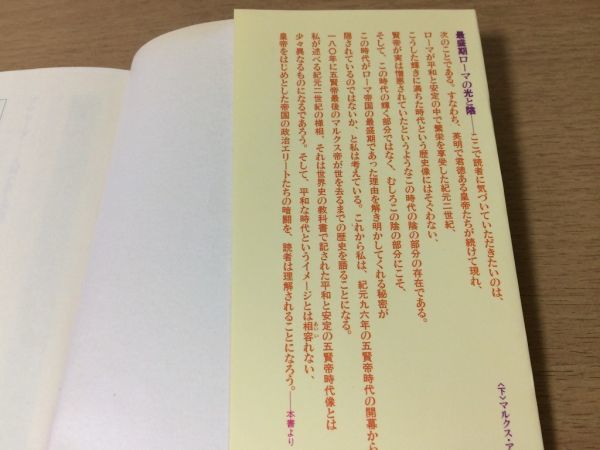 最盛期ローマの光と陰――ここで読者に気づいていただきたいのは、
次のことである。すなわち、英明で君徳ある皇帝たちが続けて現れ、
ローマが平和と安定の中で繁栄を享受した紀元二世紀、
こうした輝きに満ちた時代という歴史像にはそぐわない、
賢帝が実は憎悪されていたというようなこの時代の陰の部分の存在である。
そして、この時代の輝く部分ではなく、むしろこの陰の部分にこそ、
この時代がローマ帝国の最盛期であった理由を解き明かしてくれる秘密が
隠されているのではないか、と私は考えている。これから私は、紀元九六年の五賢帝時代の開幕から
一八〇年に五賢帝最後のマルクス帝が世を去るまでの歴史を語ることになる。
私が述べる紀元二世紀の様相、それは世界史の教科書で記された平和と安定の五賢帝時代像とは
少々異なるものになるであろう。そして、平和な時代というイメージとは相容れない、
あいい
皇帝をはじめとした帝国の政治エリートたちの暗闘を、読者は理解されることになろう。――本書より
〈下〉マルクス・ア